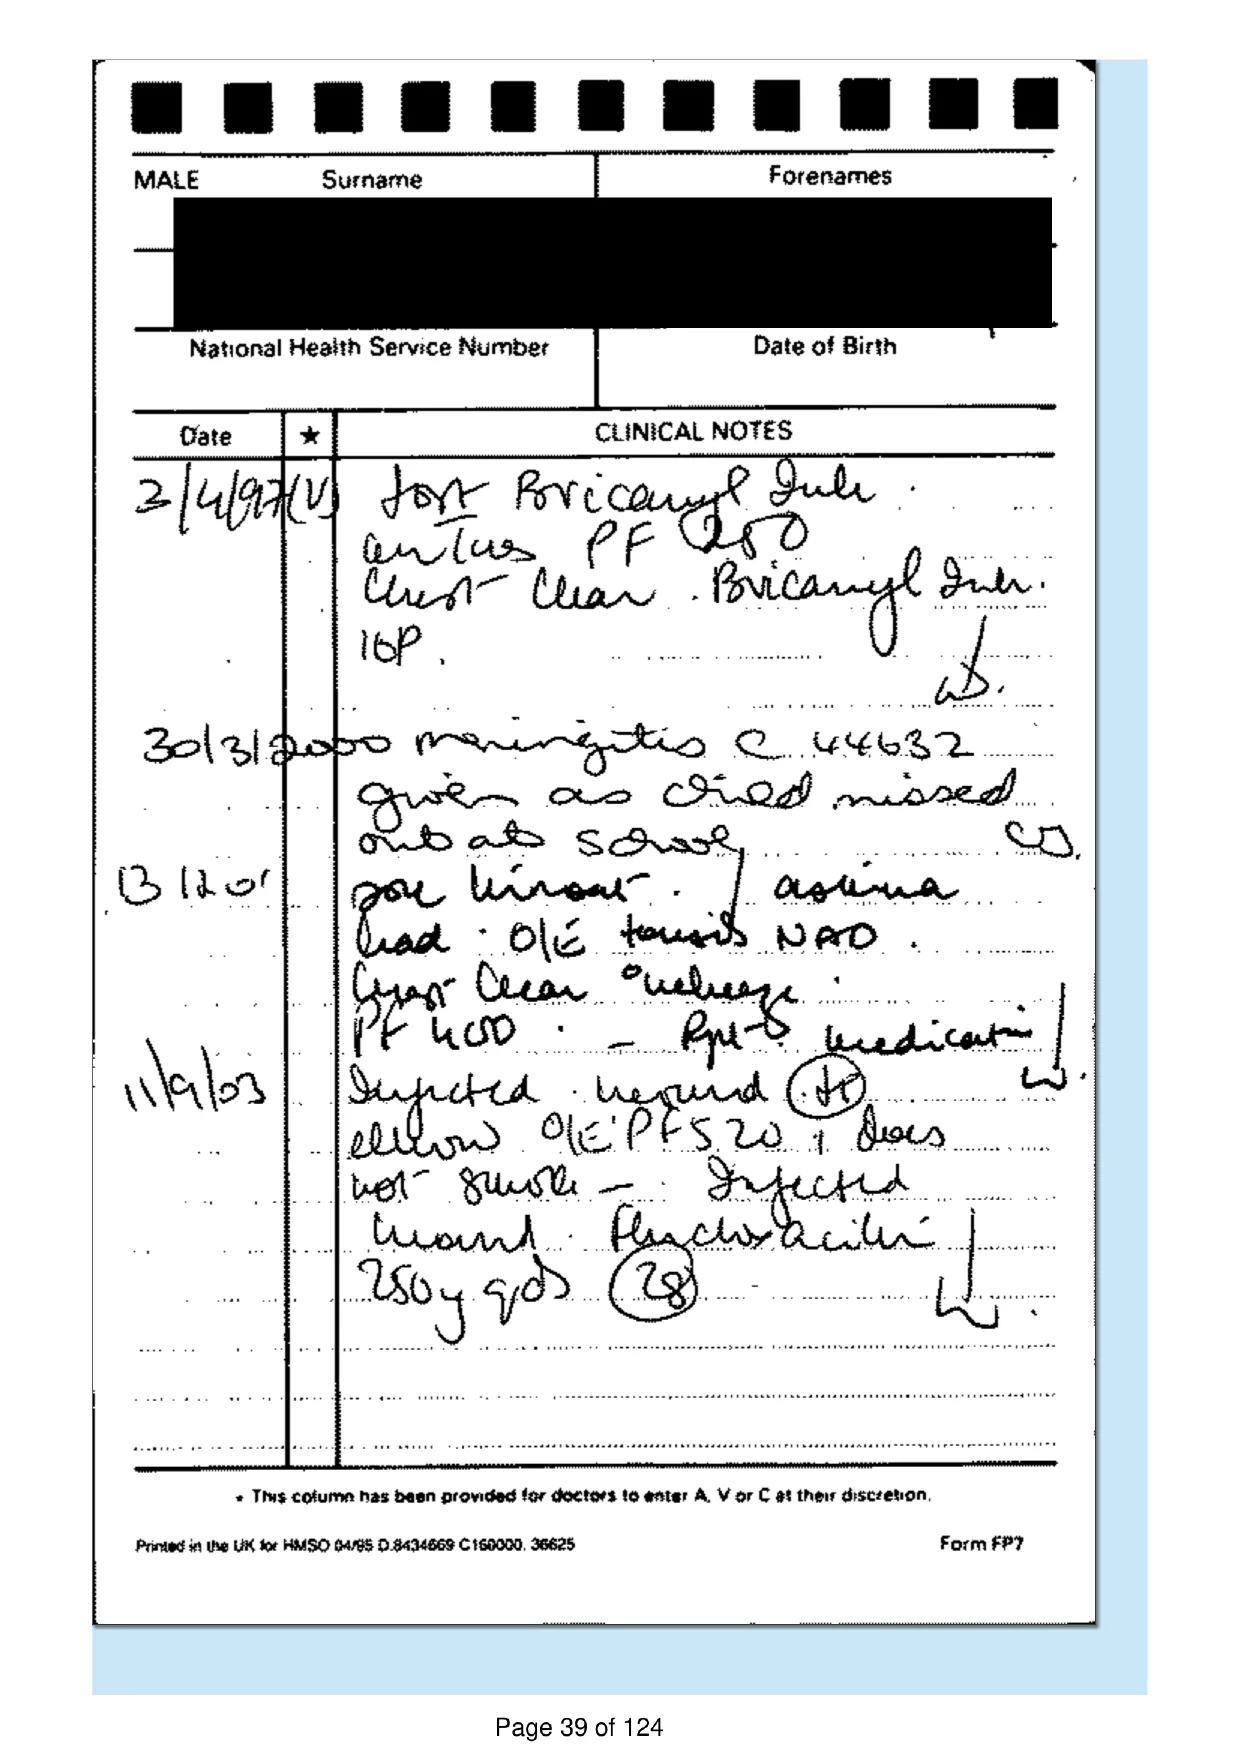 MALE Surname Forenames
National Health Service Number Date of Birth
Date ★ CLINICAL NOTES
2/4/97 (V) lost Bricanyl Inh.
PF 250
Chest Clear. Bricanyl Inh.
30/3/2000 meningitis C 44632
given as child missed
out at school
13 12 01 sore throat. asthma
bad. O/E tonsils NAD.
Chest Clear °wheeze.
PF 400 - Rpt medication
11/9/03 Infected wound
elbow O/E PF 520, does
not smoke - Infected
wound. Flucloxacillin
250 qds 28
* This column has been provided for doctors to enter A, V or C at their discretion.
Printed in the UK for HMSO 04/95 D.8434669 C160000. 36625 Form FP7
Page 39 of 124